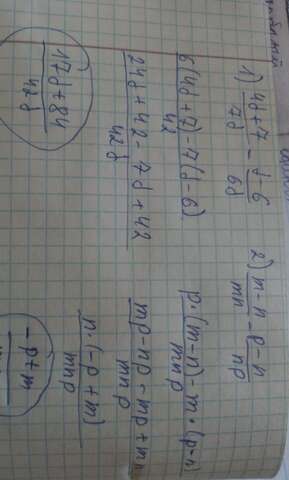 1) (4d+7)/(7d) - (d-6)/(6d)
(6(4d+7)-7(d-6))/42
(24d+42-7d+42)/(42d)
(17d+84)/(42d)
2) (m-n)/(mn) - (p-n)/(np)
(p·(m-n)-m·(p-n))/(mnp)
(mp-np-mp+m)/(mnp)
(n·(-p+m))/(mnp)
-p+m